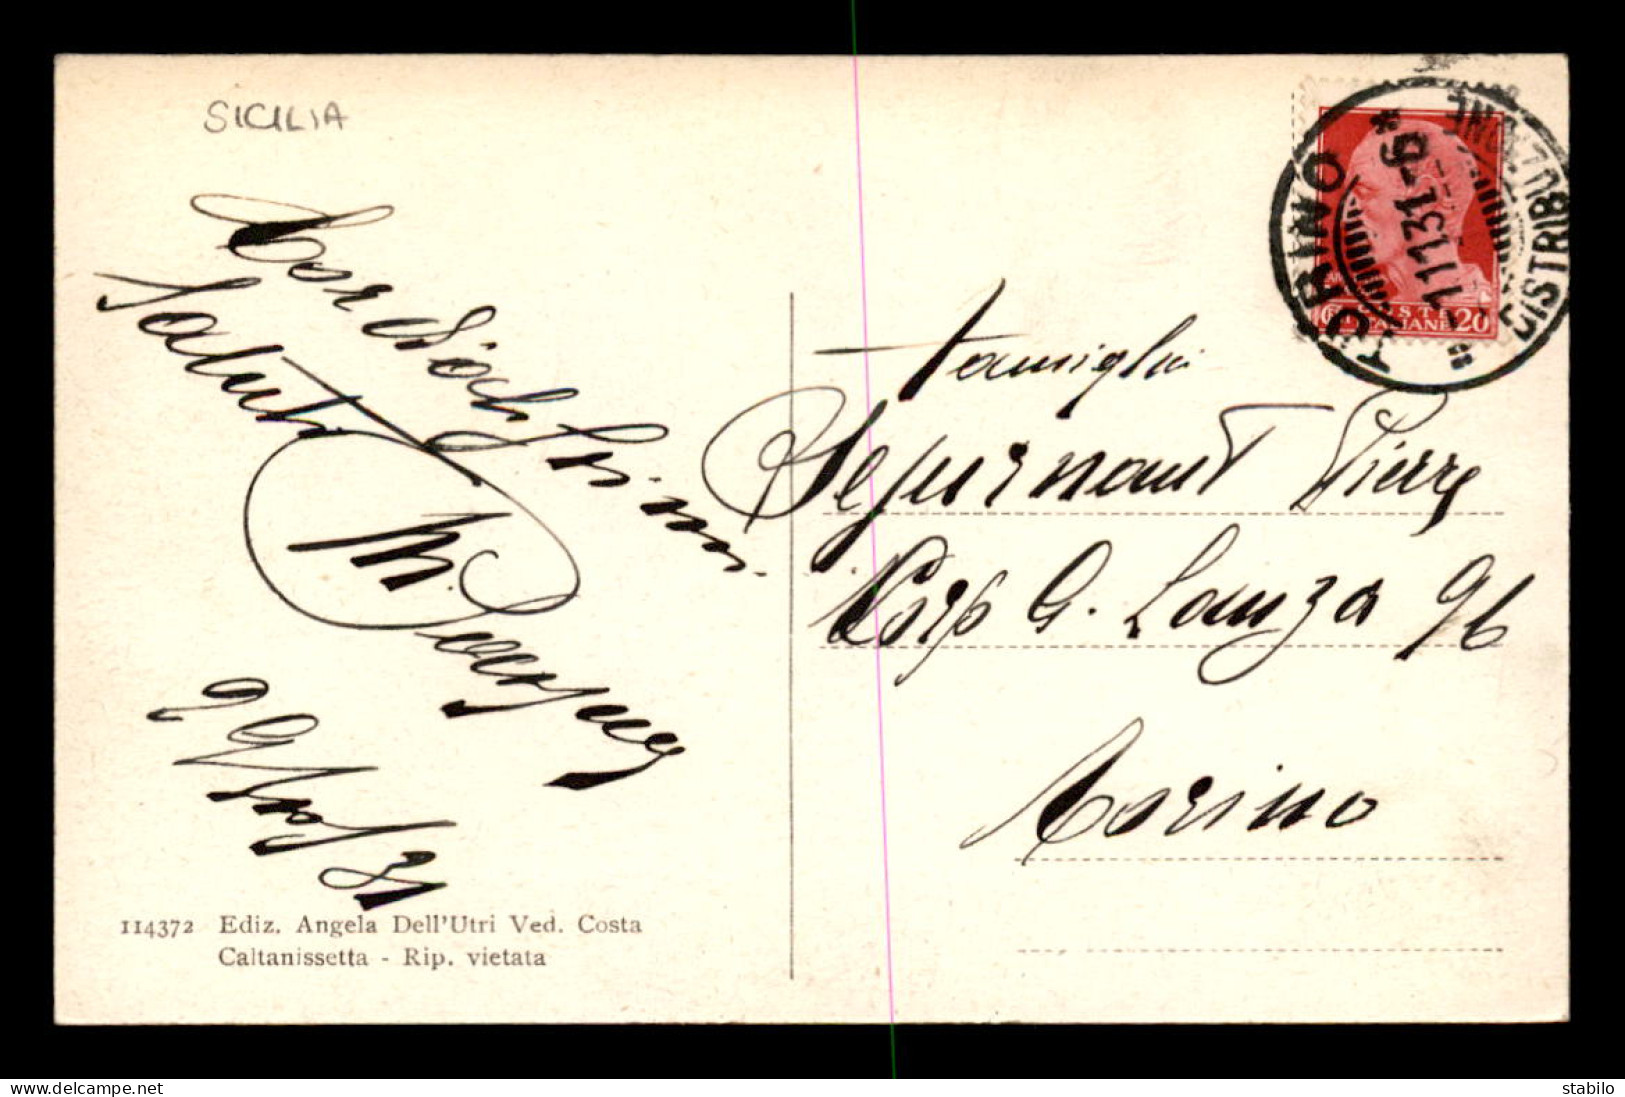 SICILIA
Cordialissimi
Saluti
M.
29/10/31
114372 Ediz. Angela Dell'Utri Ved. Costa
Caltanissetta - Rip. vietata
TORINO * DISTRIBUZIONE
-1 11 31-9
POSTE
ITALIANE 20
Famiglia
Sejurnant Pierre
Corso G. Lanza 96
Torino
www.delcampe.net
stabilo